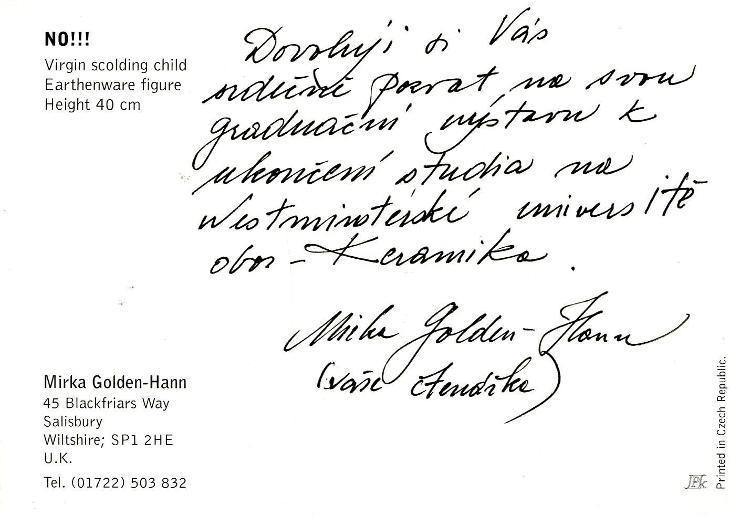 NO!!!
Virgin scolding child
Earthenware figure
Height 40 cm
Dovoluji si Vás
srdečně pozvat na svou
graduační výstavu k
ukončení studia na
Westminsterské universitě
obor - Keramika.
Mirka Golden-Hann
(vaše čtenářka)
Mirka Golden-Hann
45 Blackfriars Way
Salisbury
Wiltshire; SP1 2HE
U.K.
Tel. (01722) 503 832
Printed in Czech Republic.